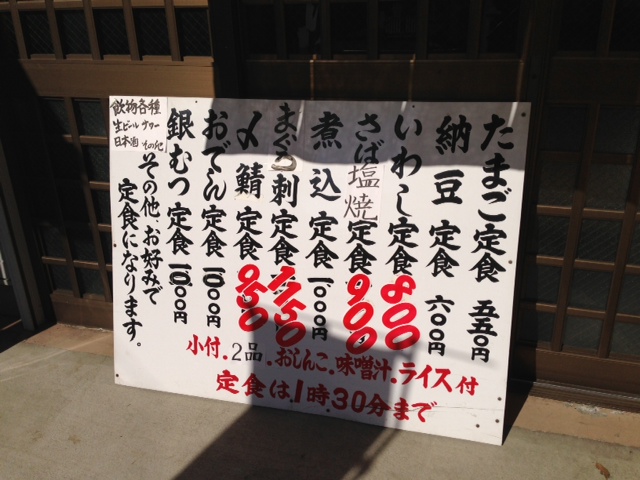 たまご定食 五五〇円
納豆定食 六〇〇円
いわし定食 800
さば塩焼定食 900
煮込定食 一〇〇〇円
まぐろ刺定食 1150
〆鯖定食 950
おでん定食 一〇〇〇円
銀むつ定食 一〇〇〇円
飲物各種
生ビール サワー
日本酒 その他
その他、お好みで
定食になります。
小付.2品.おしんこ.味噌汁.ライス付
定食は.1時.30分まで